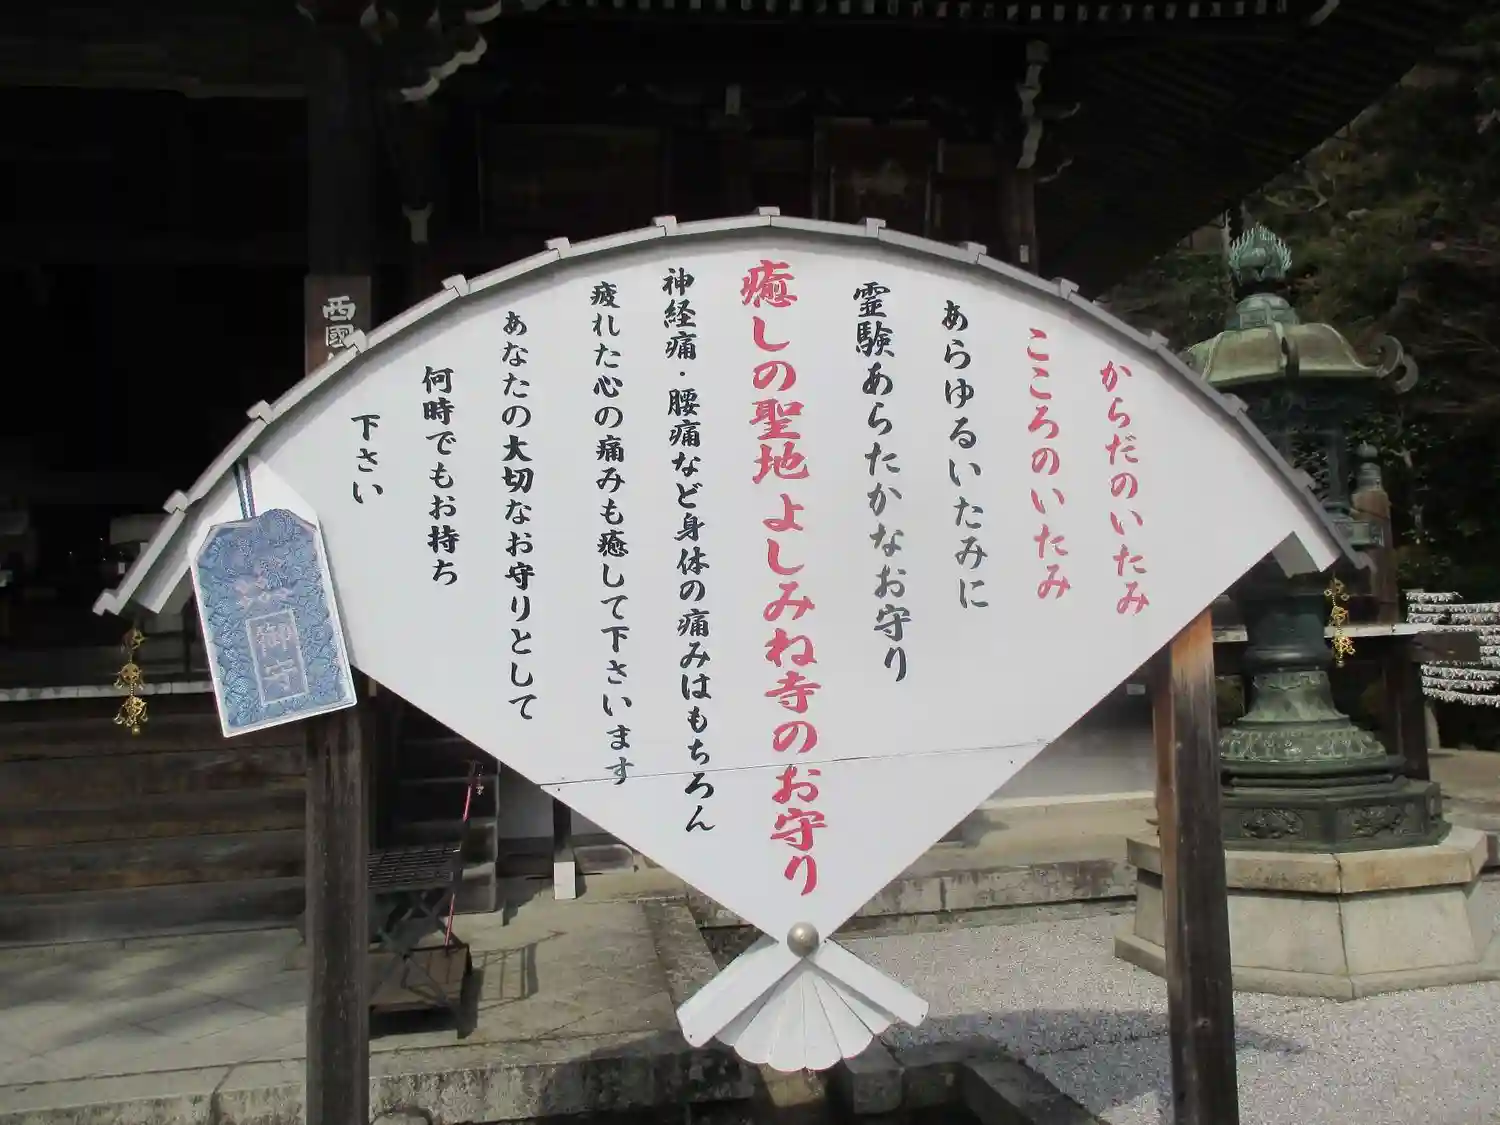 からだのいたみ
こころのいたみ
あらゆるいたみに
霊験あらたかなお守り
癒しの聖地よしみね寺のお守り
神経痛・腰痛など身体の痛みはもちろん
疲れた心の痛みも癒して下さいます
あなたの大切なお守りとして
何時でもお持ち
下さい
御守
西國